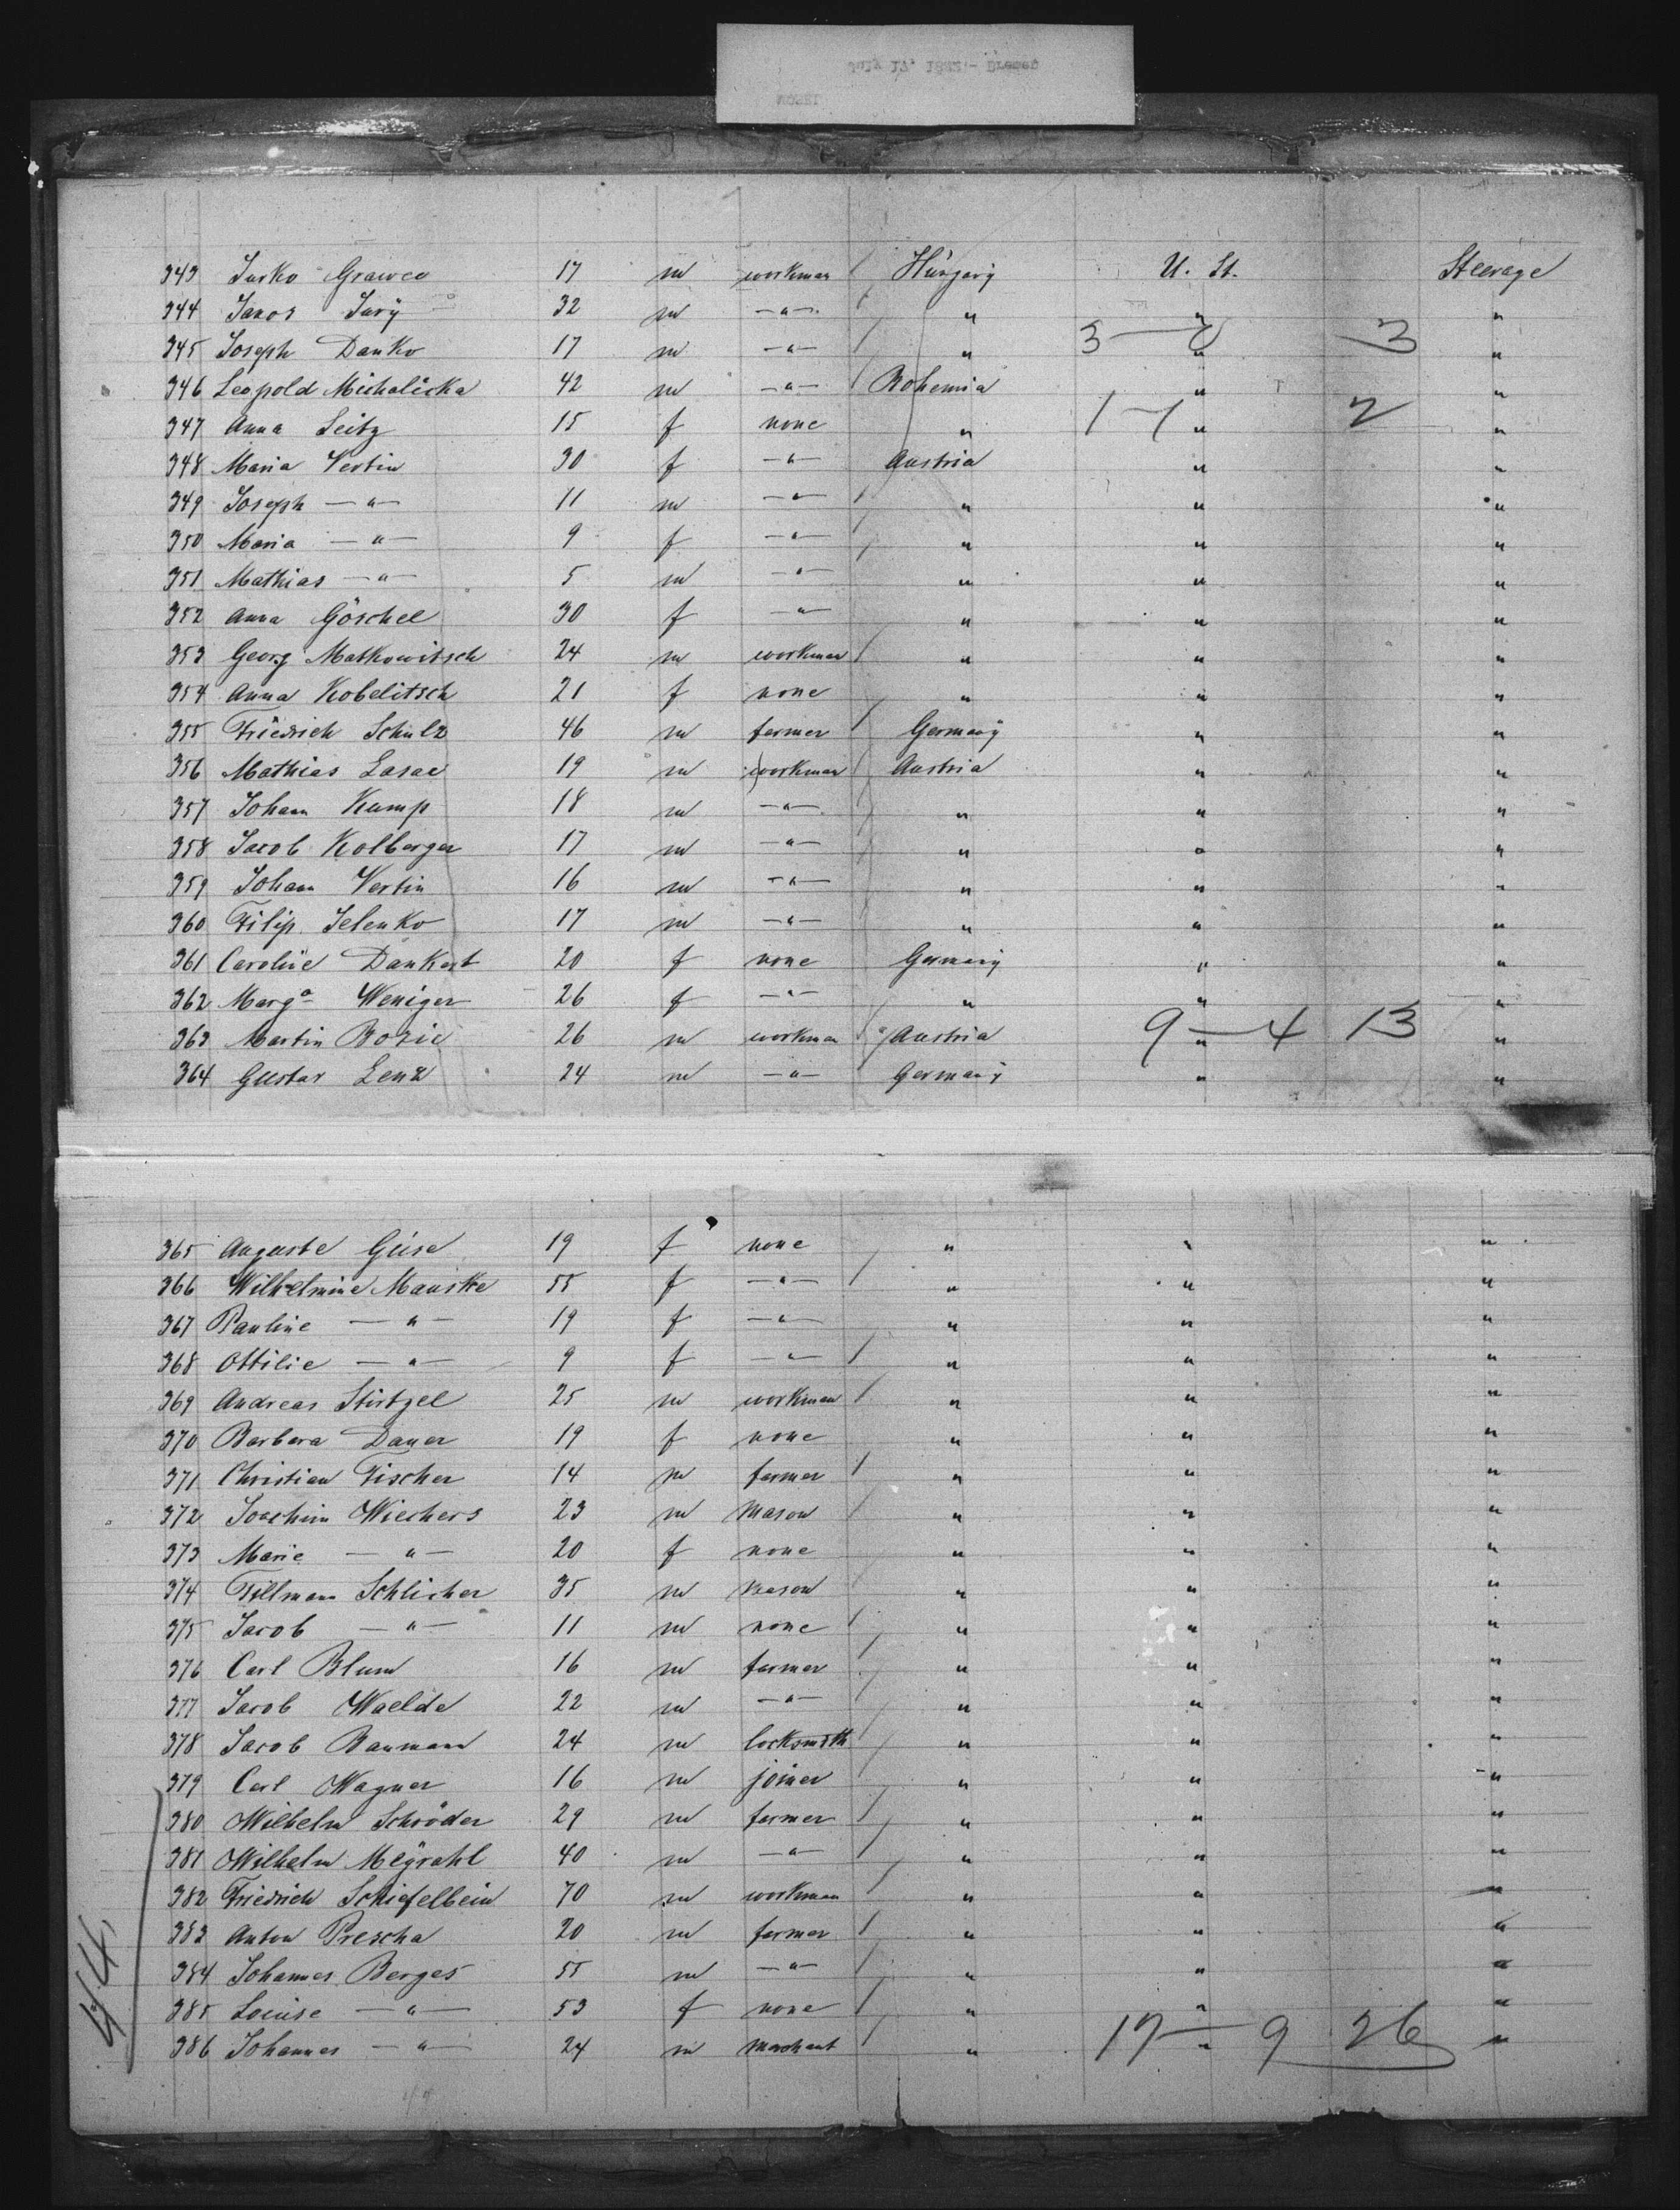 343 Jurko Grawco 17 m workman / Hungary U. St. Steerage
344 Janos Jury 32 m —"— / " " "
345 Joseph Danko 17 m —"— / " 3 — " 3 "
346 Leopold Michalicka 42 m —"— / Bohemia " "
347 Anna Seitz 15 f none " 1 — 1 " 2 "
348 Maria Vertin 30 f —"— Austria " "
349 Joseph —"— 11 m —"— / " " "
350 Maria —"— 9 f —"— / " " "
351 Mathias —"— 5 m —"— " " "
352 Anna Göschel 30 f —"— " " "
353 Georg Matkowitsch 24 m workman / " " "
354 Anna Kobelitsch 21 f none " " "
355 Friedrich Schulz 46 m farmer / Germany " "
356 Mathias Lasac 19 m workman / Austria " "
357 Johann Kump 18 m —"— " " "
358 Jacob Kolberger 17 m —"— " " "
359 Johann Vertin 16 m —"— " " "
360 Filip Jelenko 17 m —"— " " "
361 Caroline Dankert 20 f none Germany " "
362 Marga Weniger 26 f —"— " " "
363 Martin Bozic 26 m workman / Austria 9 — 4 " 13 "
364 Gustav Lenz 24 m —"— Germany " "
365 Auguste Geise 19 f none " " "
366 Wilhelmine Manske 55 f —"— / " " "
367 Pauline —"— 19 f —"— " " "
368 Ottilie —"— 9 f —"— / " " "
369 Andreas Stirtzel 25 m workman / " " "
370 Barbara Daner 19 f none " " "
371 Christian Fischer 14 m farmer / " " "
372 Joachim Wiechers 23 m Mason / " " "
373 Marie —"— 20 f none " " "
374 Tillmann Schlicher 35 m mason " " "
375 Jacob —"— 11 m none / " " "
376 Carl Blum 16 m farmer / " " "
377 Jacob Waelde 22 m —"— / " " "
378 Jacob Baumann 24 m locksmith / " " "
379 Carl Wagner 16 m joiner / " " "
380 Wilhelm Schröder 29 m farmer / " " "
381 Wilhelm Meyrahl 40 m —"— / " " "
382 Friedrich Schiefelbein 70 m workman / " " "
383 Anton Prescha 20 m farmer / " " "
384 Johannes Berges 55 m —"— / " " "
385 Louise —"— 53 f none / " " "
386 Johannes —"— 24 m Merchant / " 17 — 9 " 26 "
44.